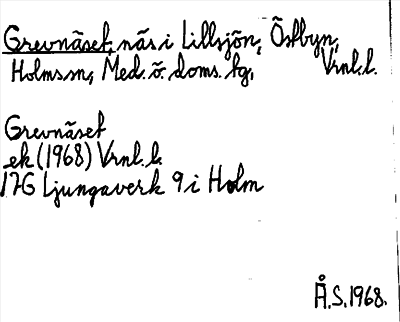 Grevnäset, näs i Lillsjön, Östbyn,
Holms sn, Med. ö. doms. tg, Vrnl.l.
Grevnäset
ek (1968) Vrnl.l.
17G Ljungaverk 9 i Holm
Å.S. 1968.